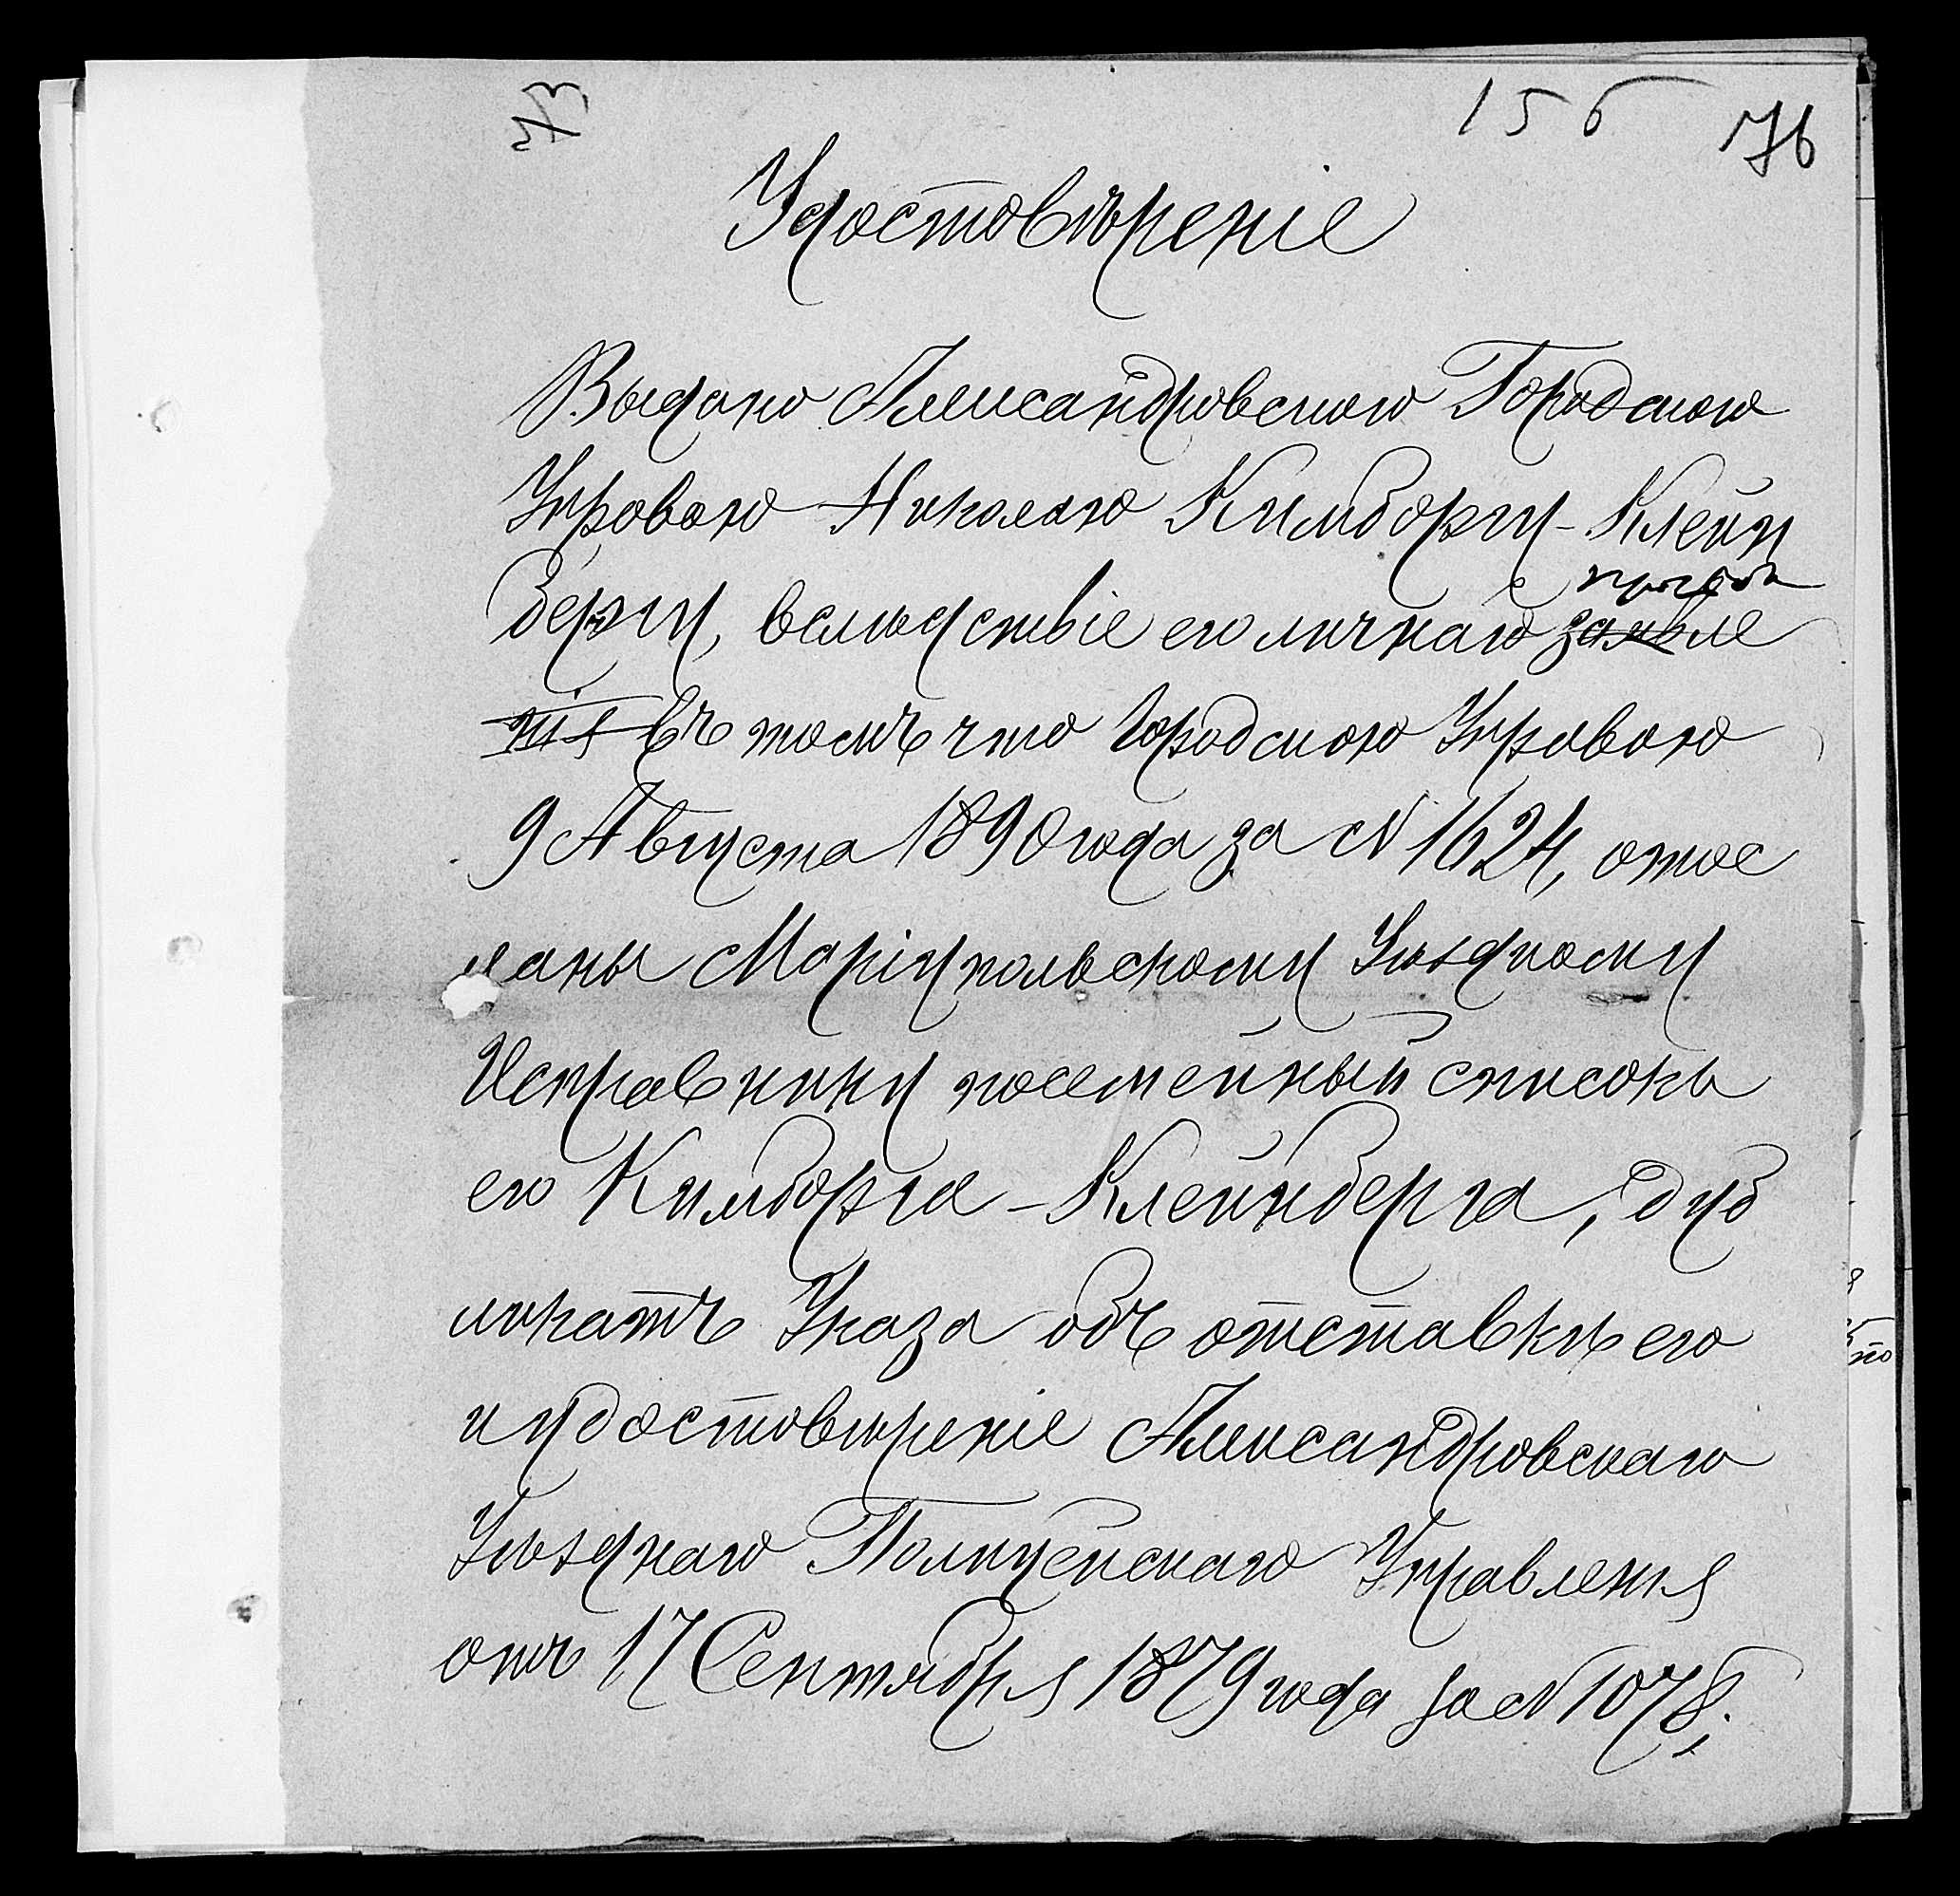 156 76
Удостовѣреніе
Выдано Александровскою Городскою
Управою Николаю Кимборгу-Клейн
бергу, вслѣдствіе его личнаго заявле
нія въ томъ что Городскою Управою
9 Августа 1890 года за № 1624, отос
ланы Маріупольскому Уѣздному
Исправнику посемейный списокъ
его Кимборга-Клейнберга, дуб
ликатъ Указа объ отставкѣ его
и удостовѣреніе Александровскаго
Уѣзднаго Полицейскаго Управленія
отъ 17 Сентября 1879 года за № 1078;